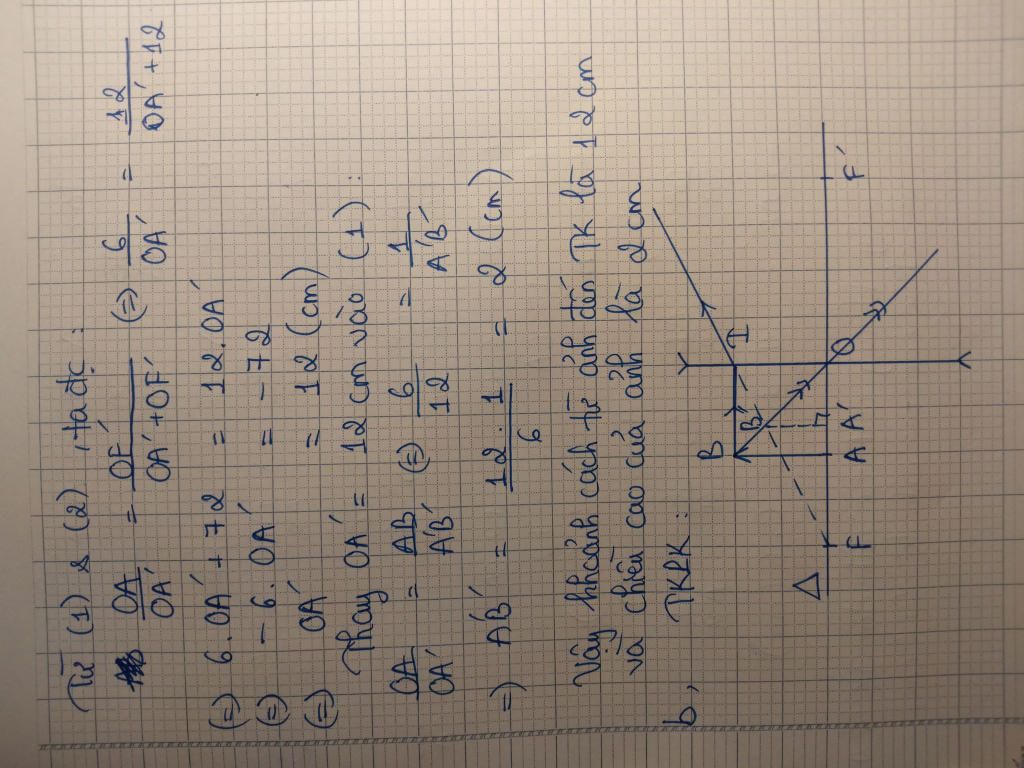 Từ (1) & (2), ta đc:
OA/OA' = OF'/OA'+OF' (=) 6/OA' = 12/OA'+12
(=) 6.OA' + 72 = 12.OA'
(=) - 6. OA' = - 72
(=) OA' = 12 (cm)
Thay OA' = 12 cm vào (1):
OA/OA' = AB/A'B' (=) 6/12 = 1/A'B'
=) A'B' = 12.1/6 = 2 (cm)
Vậy khoảnh cách từ ảnh đến TK là 12 cm
và chiều cao của ảnh là 2 cm
b, TKPK:
B B' I
Δ F A A' O F'